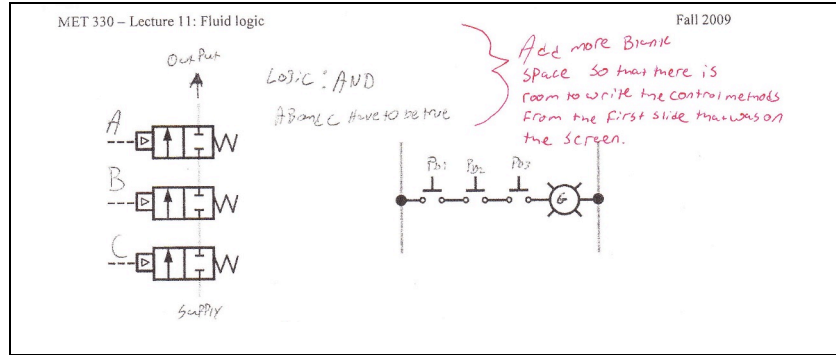 MET 330 – Lecture 11: Fluid logic
Fall 2009
OutPut
Logic: AND
A B and C Have to be true
Add more Blank
space so that there is
room to write the control methods
From the first slide that was on
the screen.
A
B
C
SuPPlY
PB1 PB2 PB3
G